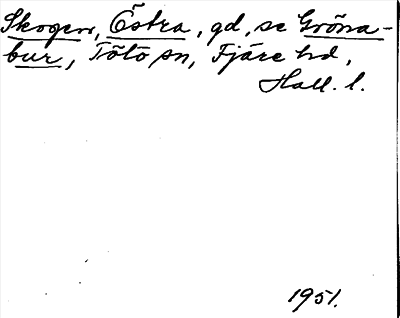 Skogen, Östra, gd, se Gröna-
bur, Tölö sn, Fjäre hd,
Hall. l.
1951.